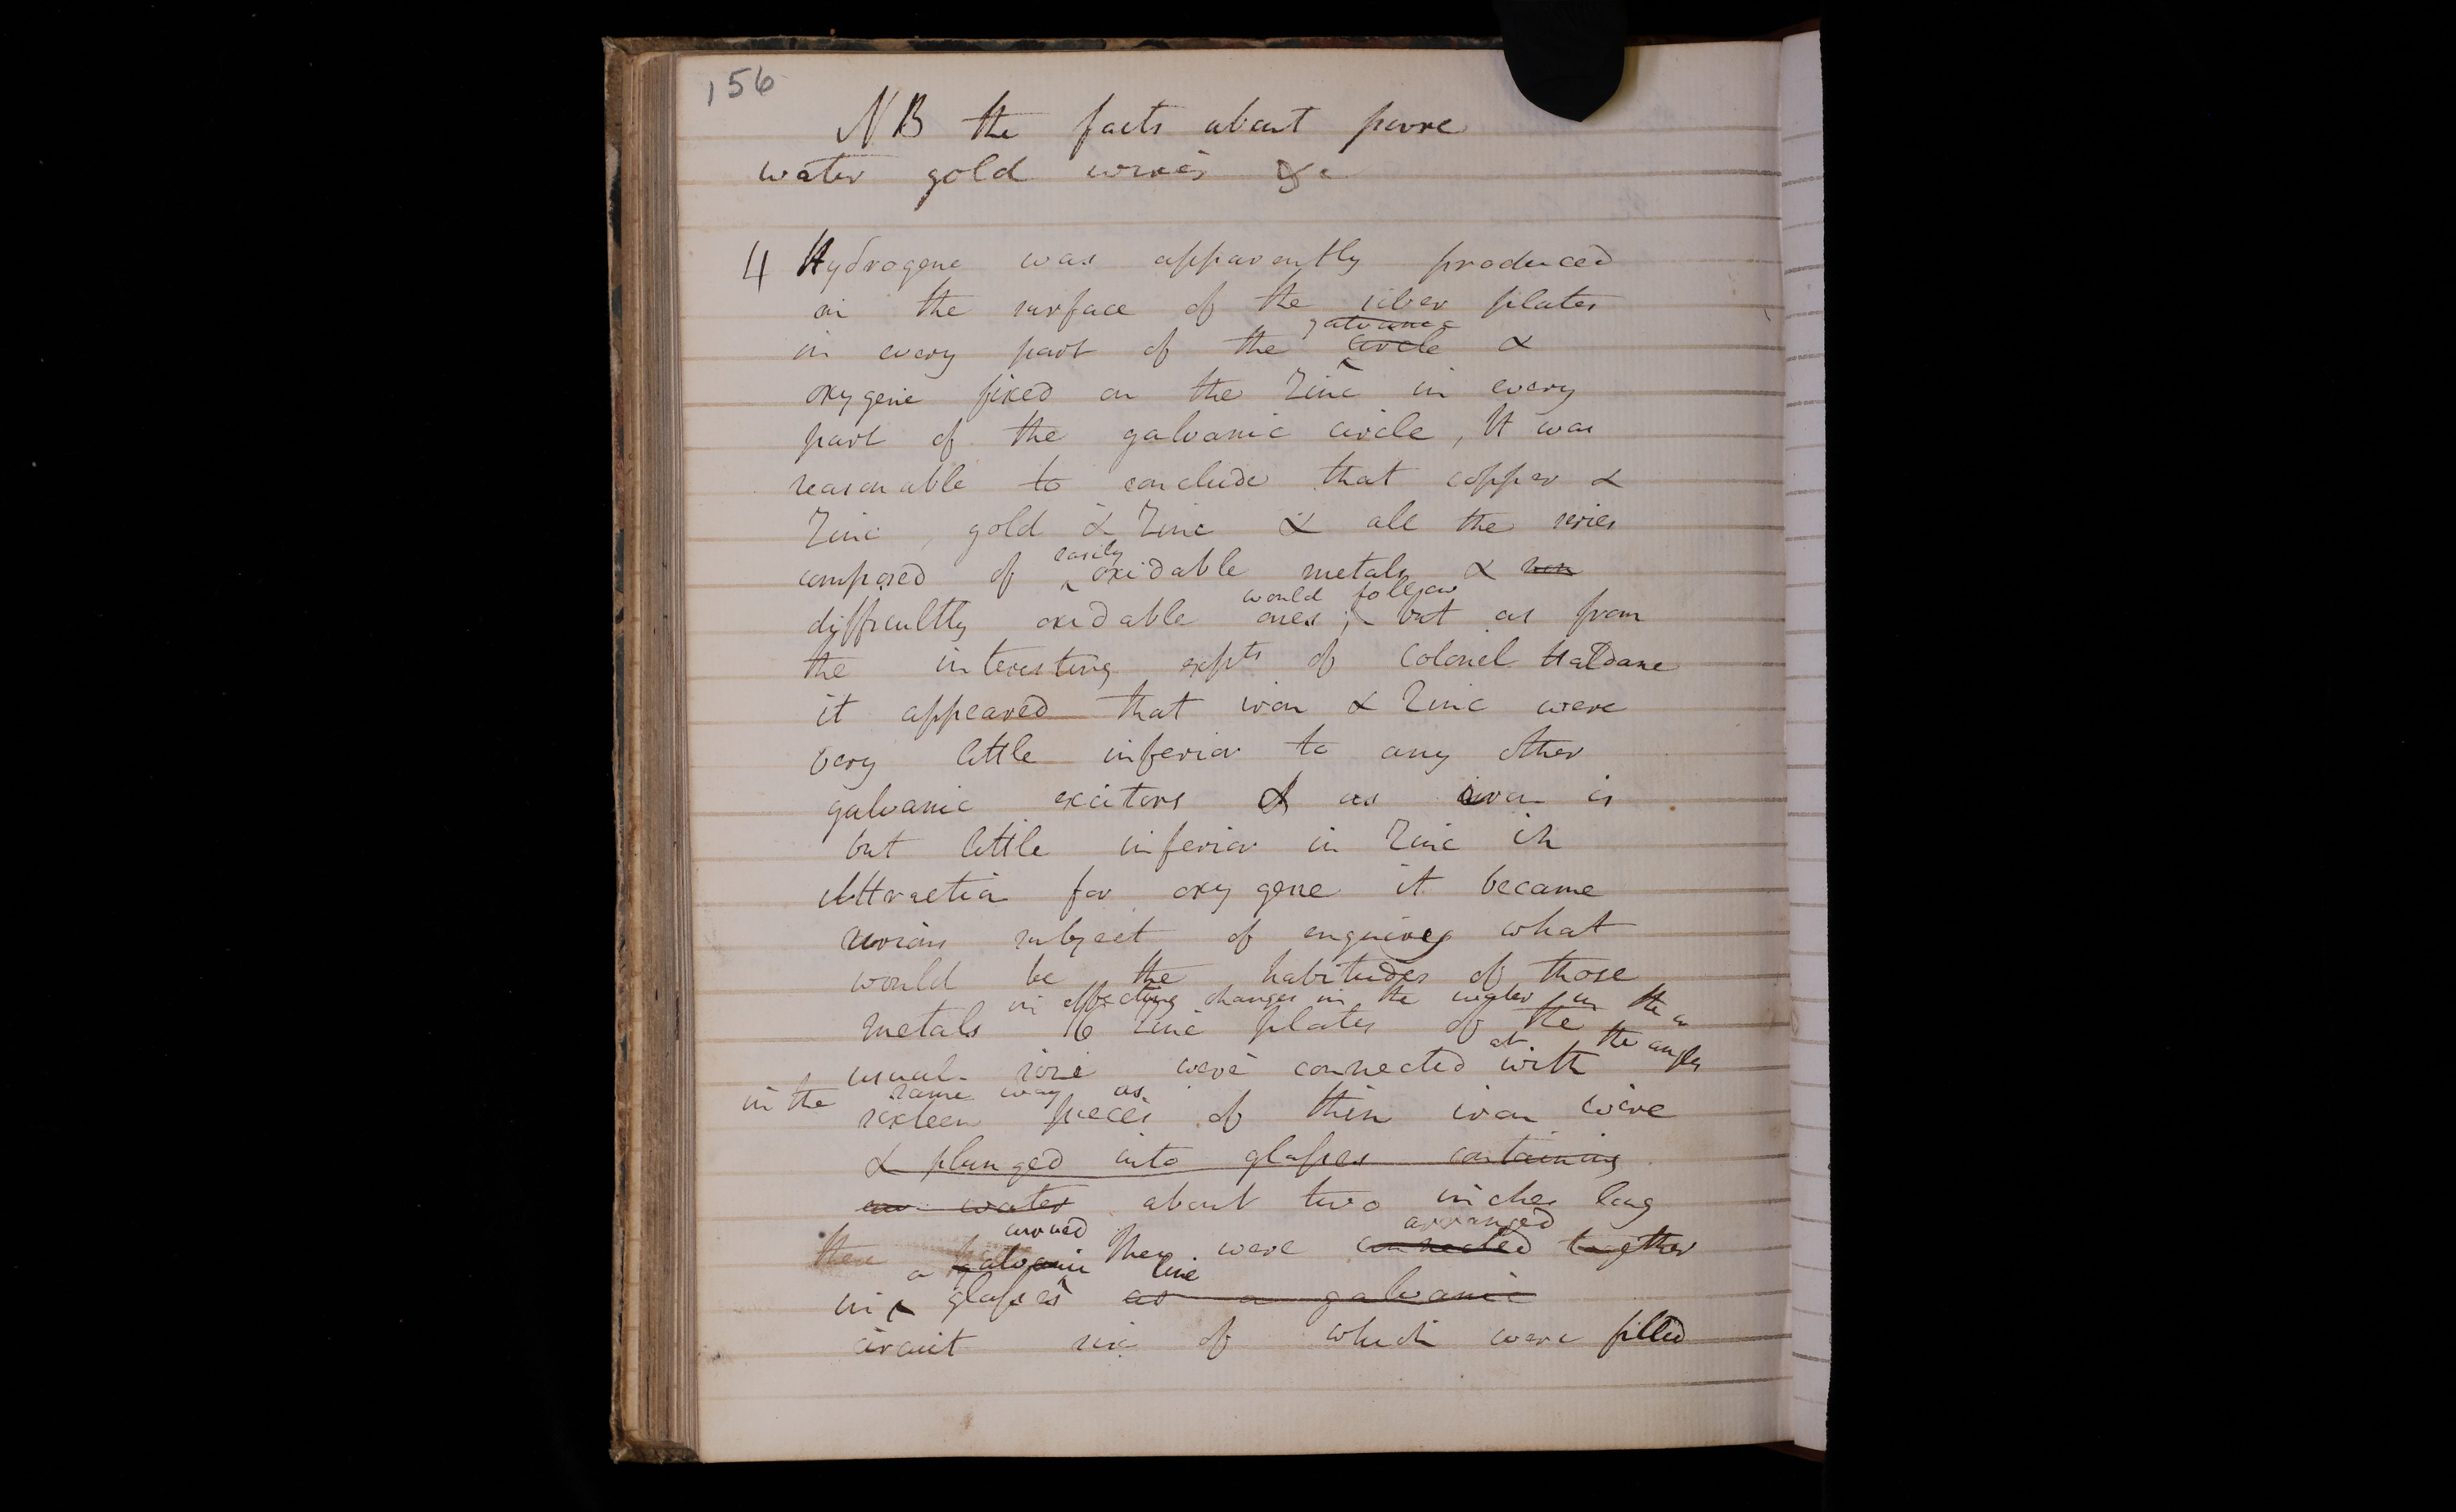 156
NB the facts about pure
water gold wires &c
4 Hydrogene was apparently produced
on the surface of the silver plates
galvanic
in every part of the circle &
oxygene fixed on the Zinc in every
part of the galvanic circle, It was
reasonable to conclude that copper &
Zinc, gold & Zinc & all the series
easily
composed of oxidable metals & non
would follow
difficultly oxidable ones; but as from
the interesting expts of Colonel Haldane
it appeared that iron & Zinc were
very little inferior to any other
galvanic excitors & as iron is
but little inferior in Zinc in
Attraction for oxygene it became
curious subject of enquirey what
would be the habitudes of those
in effecting changes in the water in the
metals 16 Zinc plates of the
at the angles
usual size were connected with
in the same way as
sixteen pieces of thin iron wire
& plunged into glasses containing
water about two inches long
curved arranged
these They were connected together
a galvanic line
in glasses as a galvanic
circuit six of which were filled